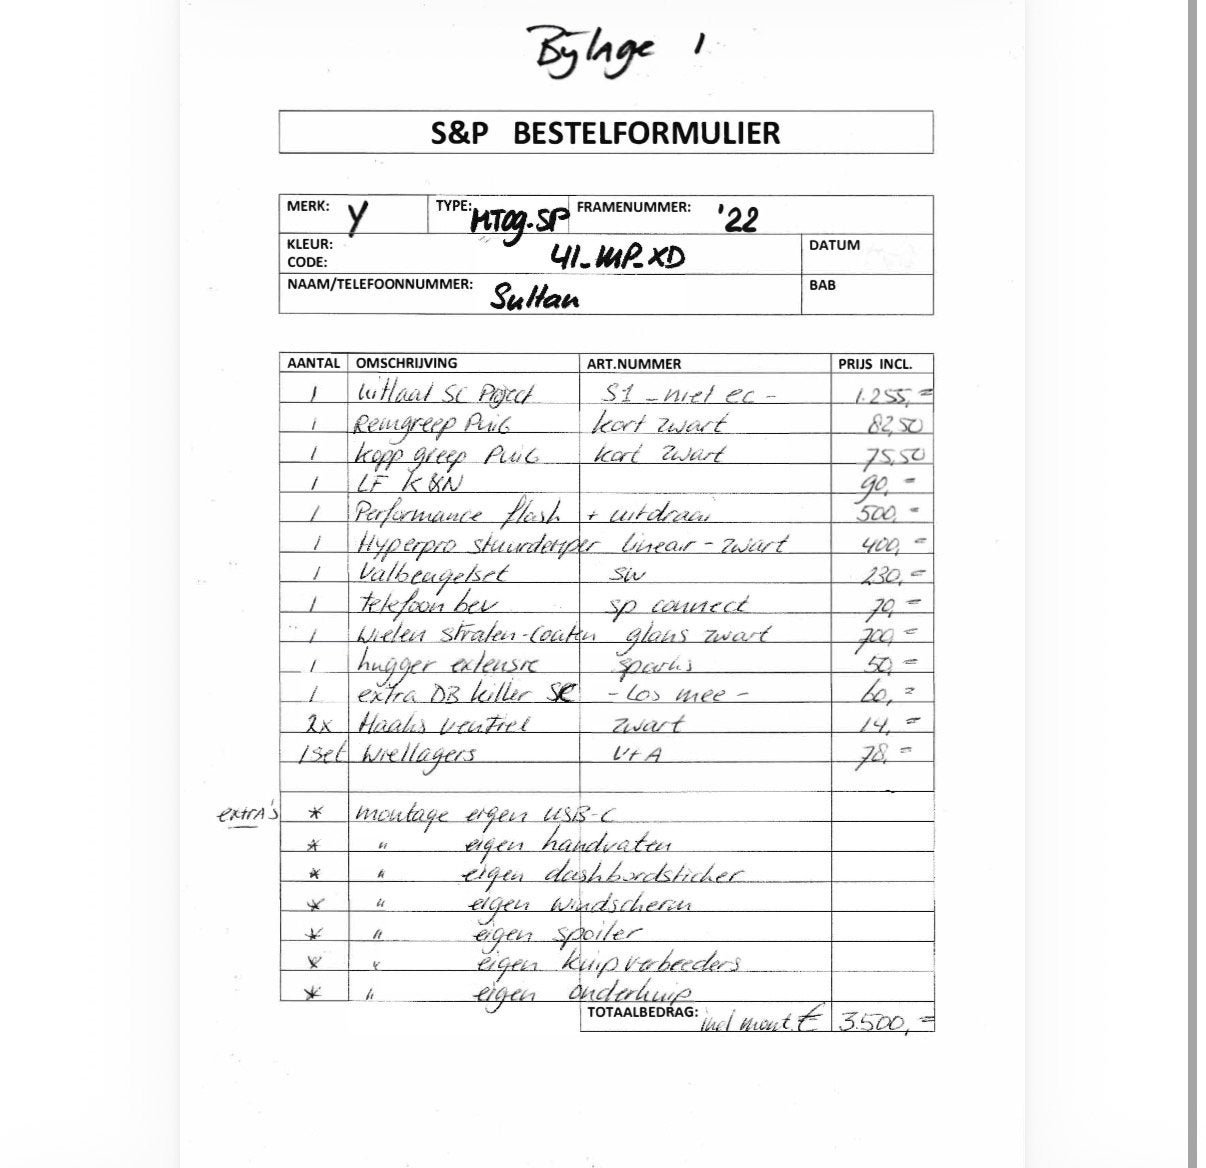 Bijlage 1
S&P BESTELFORMULIER
MERK: Y TYPE: MT09-SP FRAMENUMMER: '22
KLEUR: CODE: 41-MP-XD DATUM
NAAM/TELEFOONNUMMER: Sultan BAB
AANTAL OMSCHRIJVING ART.NUMMER PRIJS INCL.
1 Uitlaat SC Project S1 - niet ec - 1.255,=
1 Remgreep PUIG kort zwart 82,50
1 kopp greep PUIG kort zwart 75,50
1 LF K&N 90,=
1 Performance flash + uitdraai 500,=
1 Hyperpro stuurdemper lineair - zwart 400,=
1 Valbeugelset SW 230,=
1 telefoon bev sp connect 70,=
1 Wielen stralen-coaten glans zwart 700,=
1 hugger extensie sparks 50,=
1 extra DB killer SC - Los mee - 60,=
2x Haaks ventiel zwart 14,=
1 set Wiellagers V+A 78,=
extra's * montage eigen USB-C
* " eigen handvaten
* " eigen dashbordsticker
* " eigen windscherm
* " eigen spoiler
* " eigen kuipverbreeders
* " eigen onderkuip
TOTAALBEDRAG: incl mont. € 3.500,=